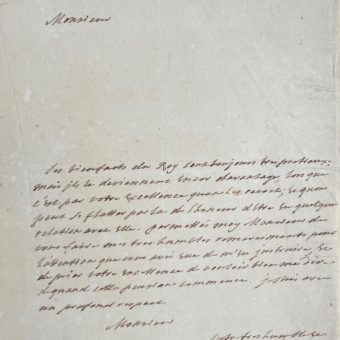 Monsieur
Les bienfaits du Roy sont toujours tres pretieux,
mais ils le deviennent encor davantage lors que
c'est par votre Excellence qu'on les recoit, et qu'on
peut se flatter par la de l'honneur d'etre en quelque
relation avec Elle. permettés moy Monsieur de
vous faire mes tres humbles remerciments pour
l'attention que vous avez eue de m'en instruire, et
de prier votre Excellence de vouloir bien me dire
quand cette pension commence, je suis avec
un profond respect
Monsieur